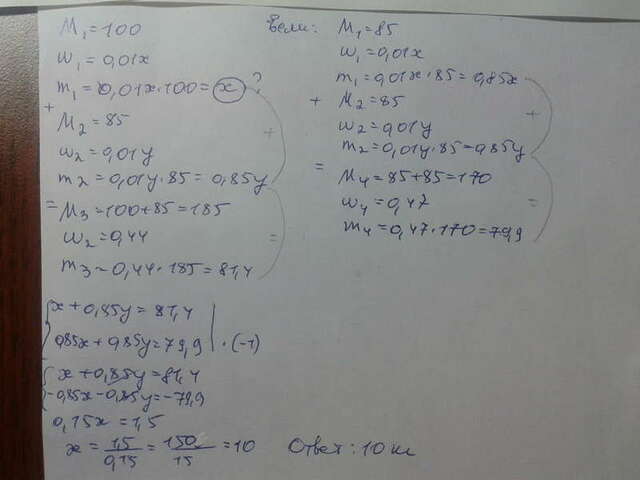 M₁=100
w₁=0,01x
m₁=0,01x·100=x?
+
M₂=85
w₂=0,01y
m₂=0,01y·85=0,85y
+
=
M₃=100+85=185
w₂=0,44
m₃=0,44·185=81,4
=
Если: M₁=85
w₁=0,01x
m₁=0,01x·85=0,85x
+ M₂=85
w₂=0,01y
m₂=0,01y·85=0,85y
+
=
M₄=85+85=170
w₄=0,47
m₄=0,47·170=79,9
=
{x+0,85y=81,4
0,85x+0,85y=79,9 | ·(-1)
{x+0,85y=81,4
-0,85x-0,85y=-79,9
0,15x=1,5
x=1,5/0,15=150/15=10 Ответ: 10 кг